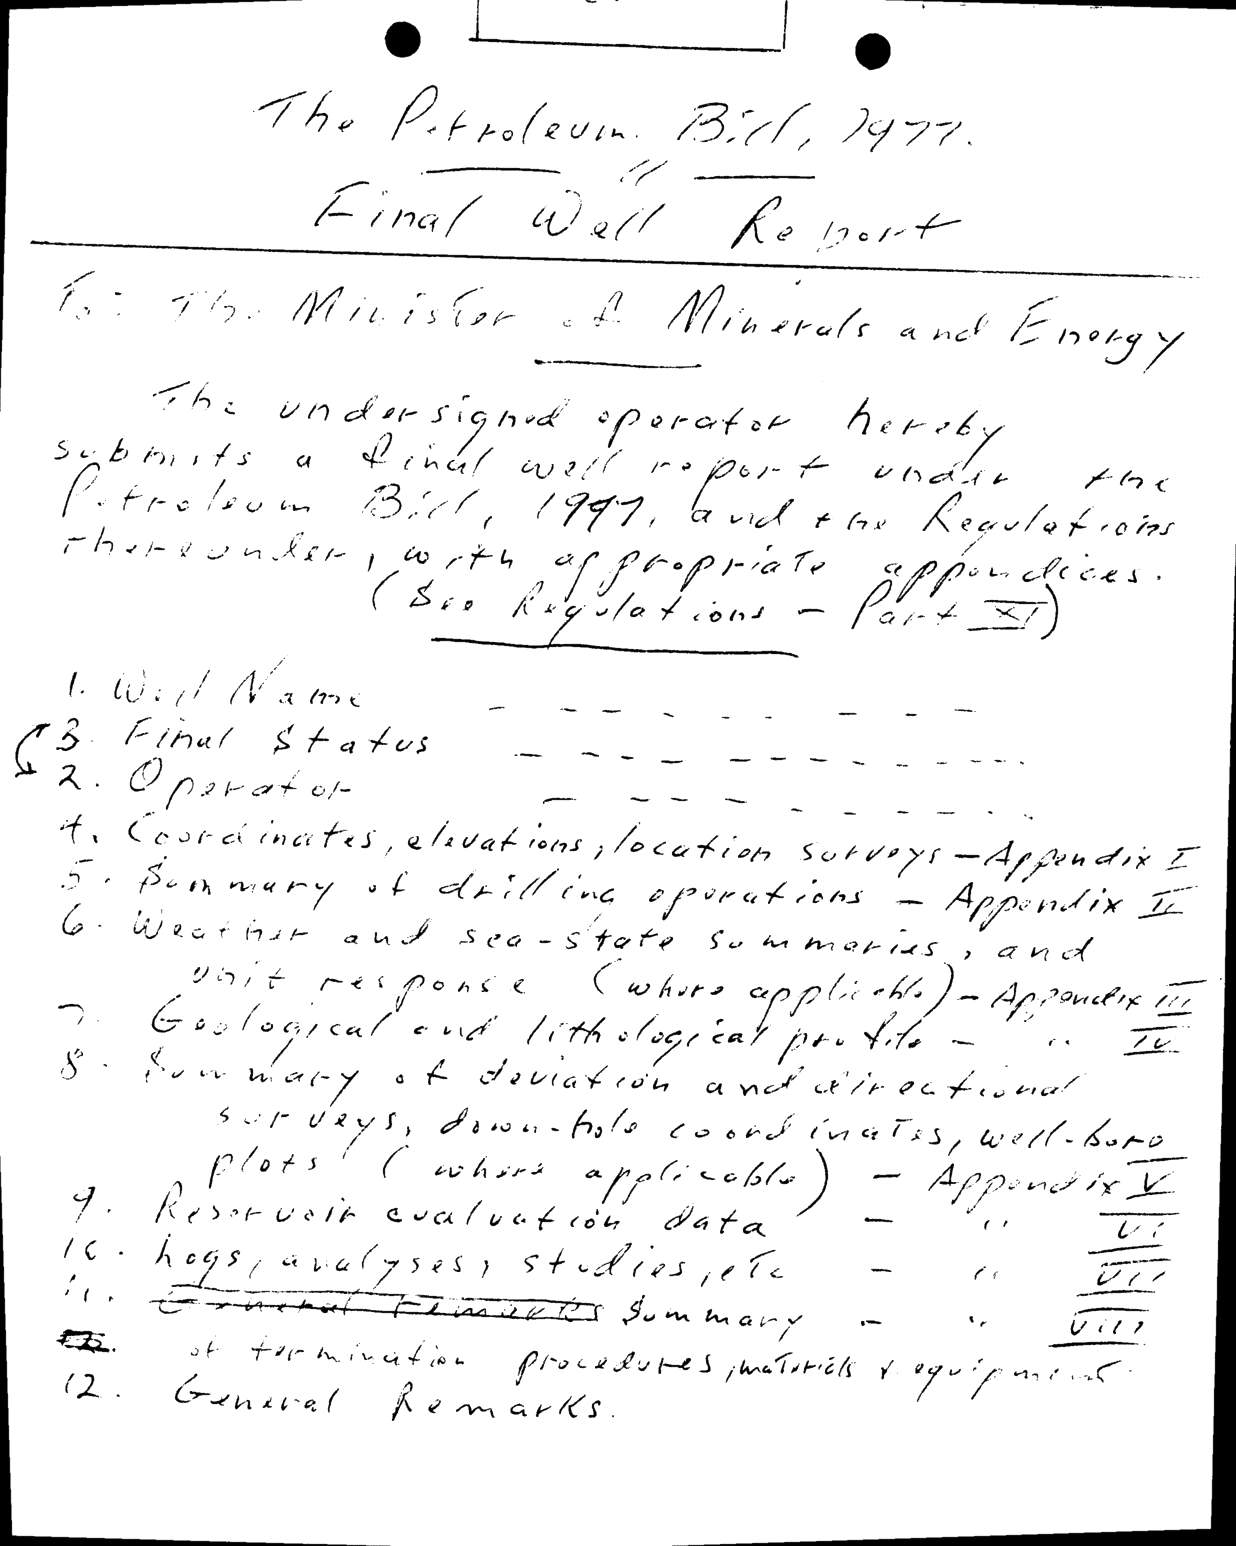 The Petroleum Bill, 1977.
"
Final Well Report
To: The Minister of Minerals and Energy
The undersigned operator hereby
submits a final well report under the
Petroleum Bill, 1977, and the Regulations
thereunder, with appropriate appendices.
(See Regulations - Part XI)
1. Well Name - - - - - - - -
3. Final Status - - - - - - - - - - - -
2. Operator - - - - - - - - - -
4. Coordinates, elevations, location surveys - Appendix I
5. Summary of drilling operations - Appendix II
6. Weather and sea-state summaries, and
unit response (where applicable) - Appendix III
7. Geological and lithological profile - " IV
8. Summary of deviation and directional
surveys, down-hole coordinates, well-bore
plots (where applicable) - Appendix V
9. Reservoir evaluation data - " VI
10. Logs, analyses, studies, etc - " VII
11. General Remarks Summary - " VIII
of termination procedures, materials & equipment.
12. General Remarks.